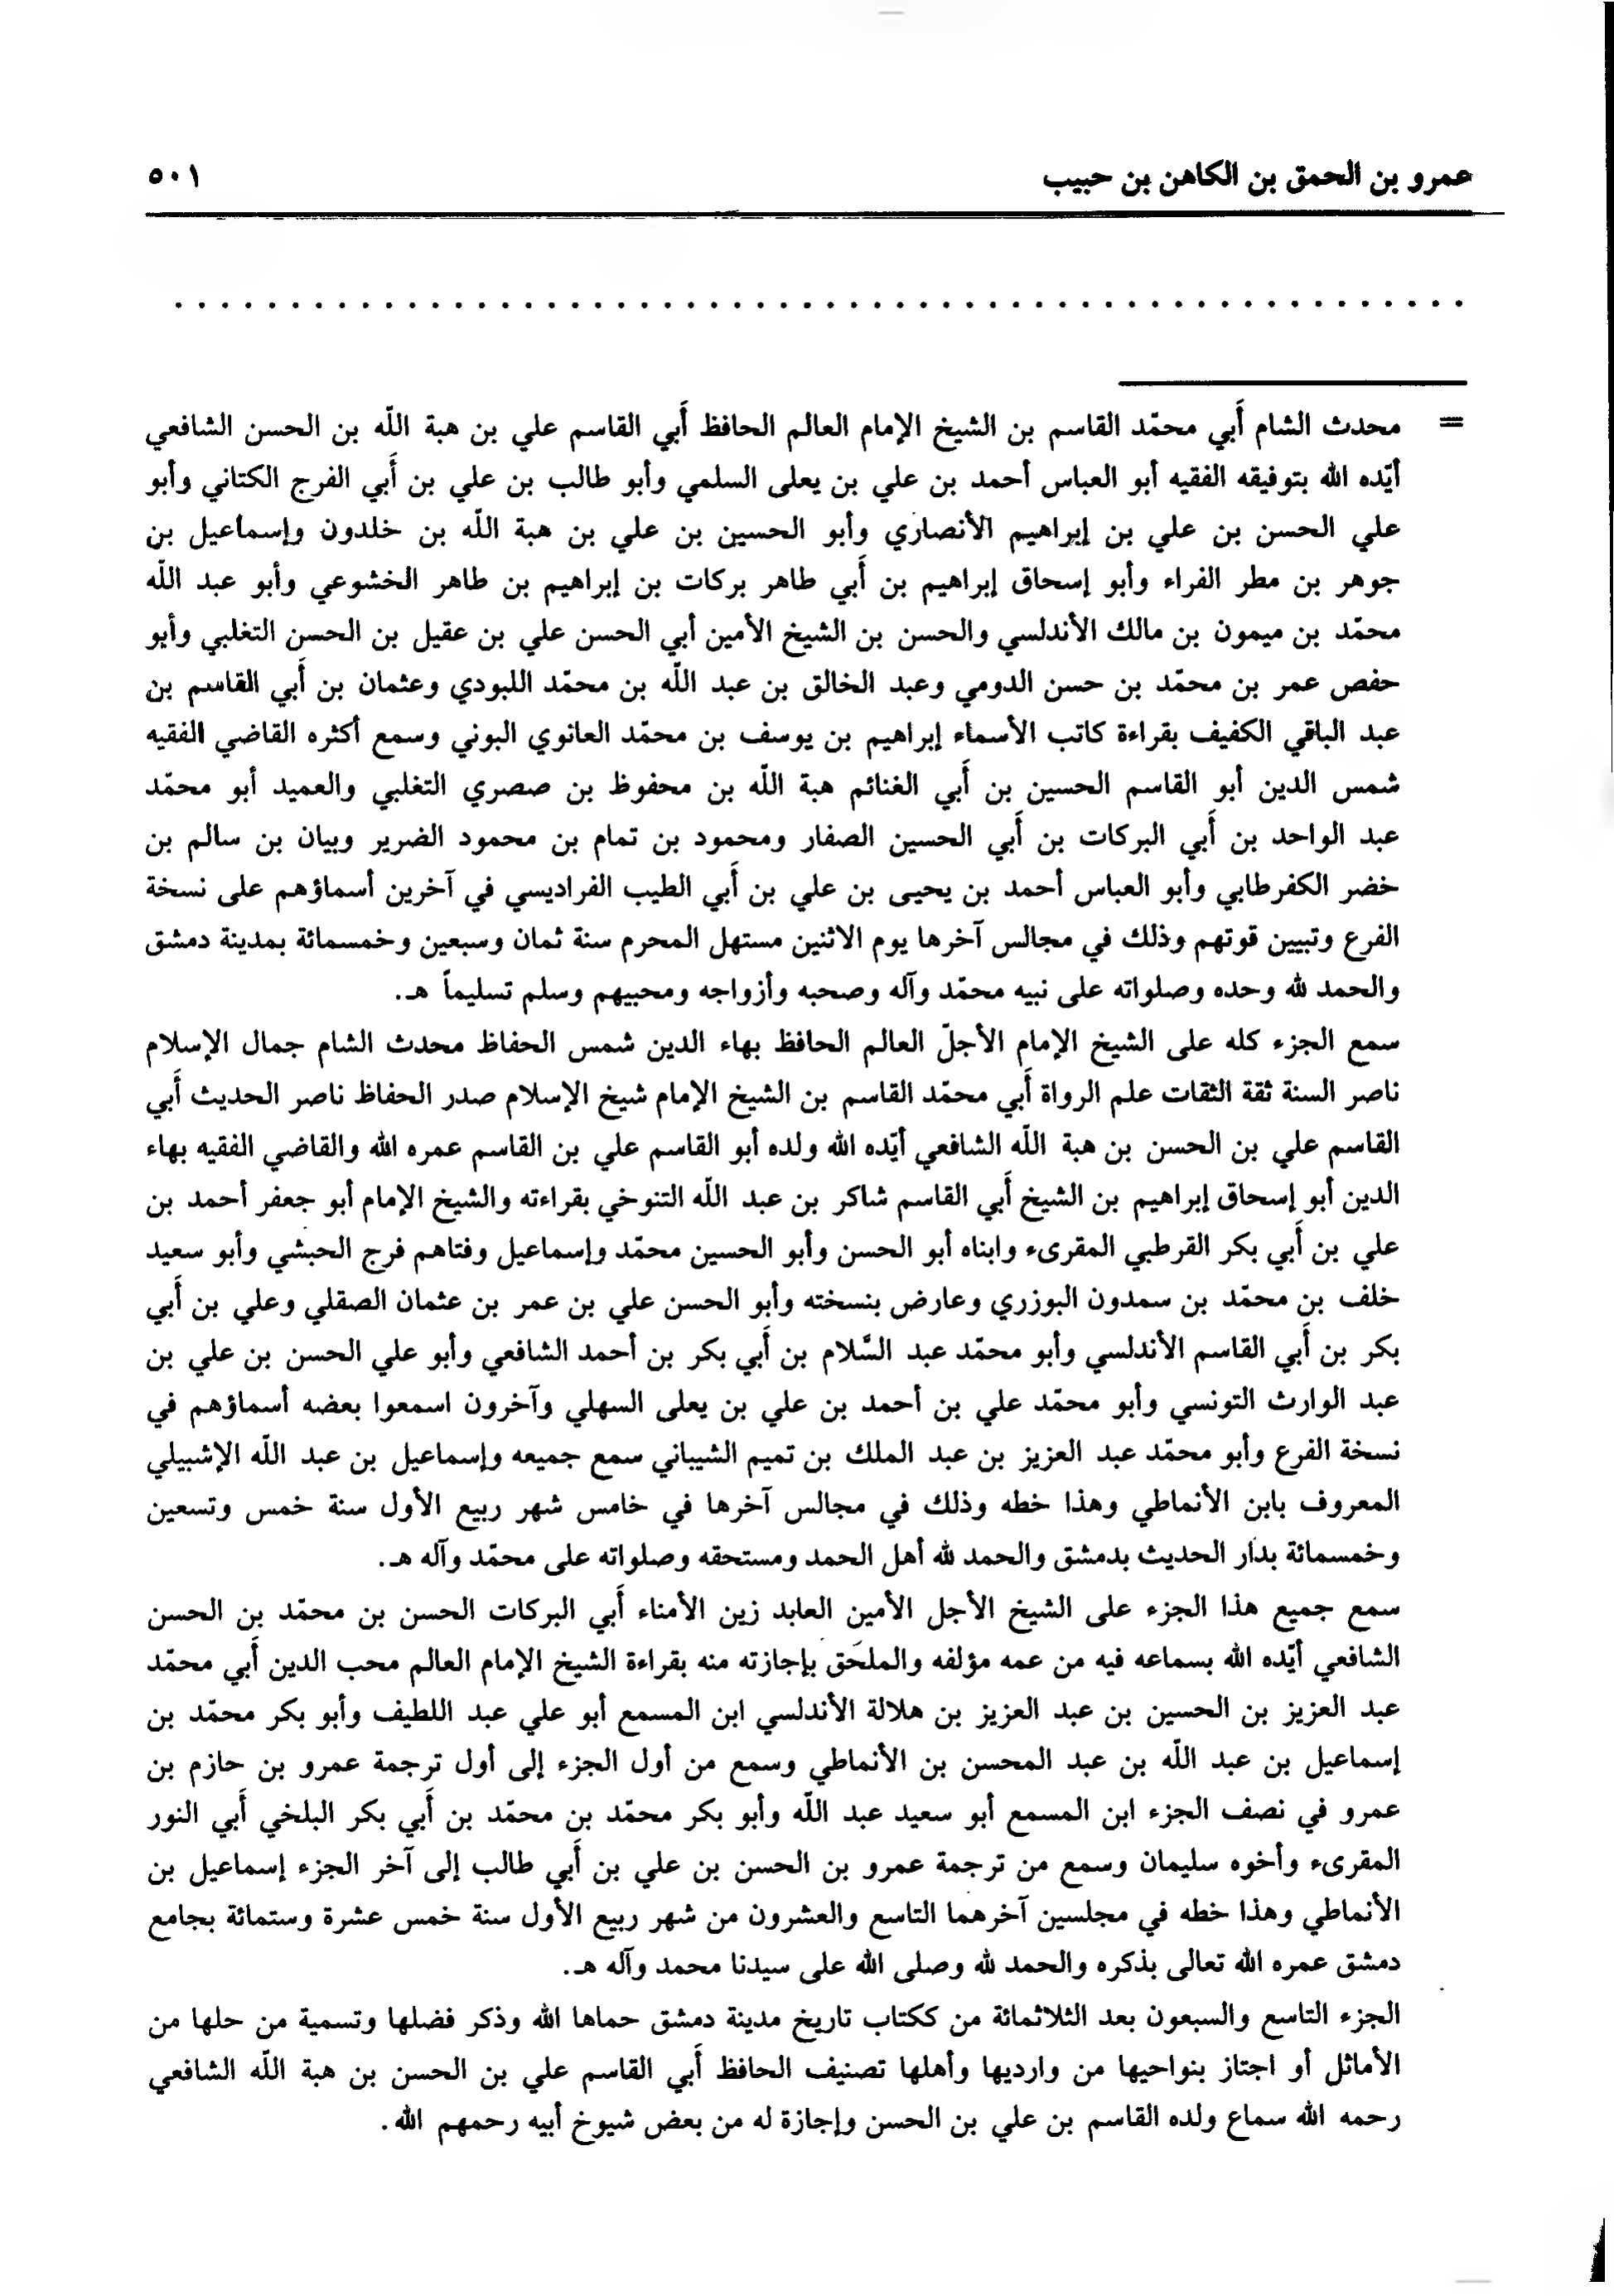 عمرو بن الحمق بن الكاهن بن حبيب ٥٠١
. . . . . . . . . . . . . . . . . . . . . . . . . . . . . . . . . . . . . . . . . . . . . . . . . . . . . . . .
= محدث الشام أَبي محمّد القاسم بن الشيخ الإمام العالم الحافظ أَبي القاسم علي بن هبة اللّه بن الحسن الشافعي
أيّده الله بتوفيقه الفقيه أبو العباس أحمد بن علي بن يعلى السلمي وأبو طالب بن علي بن أَبي الفرج الكتاني وأبو
علي الحسن بن علي بن إبراهيم الأنصاري وأبو الحسين بن علي بن هبة اللّه بن خلدون وإسماعيل بن
جوهر بن مطر الفراء وأبو إسحاق إبراهيم بن أَبي طاهر بركات بن إبراهيم بن طاهر الخشوعي وأبو عبد اللّه
محمّد بن ميمون بن مالك الأندلسي والحسن بن الشيخ الأمين أبي الحسن علي بن عقيل بن الحسن التغلبي وأبو
حفص عمر بن محمّد بن حسن الدومي وعبد الخالق بن عبد اللّه بن محمّد اللبودي وعثمان بن أَبي القاسم بن
عبد الباقي الكفيف بقراءة كاتب الأسماء إبراهيم بن يوسف بن محمّد العانوي البوني وسمع أكثره القاضي الفقيه
شمس الدين أبو القاسم الحسين بن أَبي الغنائم هبة اللّه بن محفوظ بن صصري التغلبي والعميد أبو محمّد
عبد الواحد بن أَبي البركات بن أَبي الحسين الصفار ومحمود بن تمام بن محمود الضرير وبيان بن سالم بن
خضر الكفرطابي وأبو العباس أحمد بن يحيى بن علي بن أَبي الطيب الفراديسي في آخرين أسماؤهم على نسخة
الفرع وتبيين قوتهم وذلك في مجالس آخرها يوم الاثنين مستهل المحرم سنة ثمان وسبعين وخمسمائة بمدينة دمشق
والحمد لله وحده وصلواته على نبيه محمّد وآله وصحبه وأزواجه ومحبيهم وسلم تسليماً هـ.
سمع الجزء كله على الشيخ الإمام الأجلّ العالم الحافظ بهاء الدين شمس الحفاظ محدث الشام جمال الإسلام
ناصر السنة ثقة الثقات علم الرواة أَبي محمّد القاسم بن الشيخ الإمام شيخ الإسلام صدر الحفاظ ناصر الحديث أَبي
القاسم علي بن الحسن بن هبة اللّه الشافعي أيّده الله ولده أبو القاسم علي بن القاسم عمره الله والقاضي الفقيه بهاء
الدين أبو إسحاق إبراهيم بن الشيخ أَبي القاسم شاكر بن عبد اللّه التنوخي بقراءته والشيخ الإمام أبو جعفر أحمد بن
علي بن أَبي بكر القرطبي المقرىء وابناه أبو الحسن وأبو الحسين محمّد وإسماعيل وفتاهم فرج الحبشي وأبو سعيد
خلف بن محمّد بن سمدون البوزري وعارض بنسخته وأبو الحسن علي بن عمر بن عثمان الصقلي وعلي بن أَبي
بكر بن أَبي القاسم الأندلسي وأبو محمّد عبد السَّلام بن أَبي بكر بن أحمد الشافعي وأبو علي الحسن بن علي بن
عبد الوارث التونسي وأبو محمّد علي بن أحمد بن علي بن يعلى السهلي وآخرون اسمعوا بعضه أسماؤهم في
نسخة الفرع وأبو محمّد عبد العزيز بن عبد الملك بن تميم الشيباني سمع جميعه وإسماعيل بن عبد اللّه الإشبيلي
المعروف بابن الأنماطي وهذا خطه وذلك في مجالس آخرها في خامس شهر ربيع الأول سنة خمس وتسعين
وخمسمائة بدار الحديث بدمشق والحمد لله أهل الحمد ومستحقه وصلواته على محمّد وآله هـ.
سمع جميع هذا الجزء على الشيخ الأجل الأمين العابد زين الأمناء أَبي البركات الحسن بن محمّد بن الحسن
الشافعي أيّده الله بسماعه فيه من عمه مؤلفه والملحَق بإجازته منه بقراءة الشيخ الإمام العالم محب الدين أَبي محمّد
عبد العزيز بن الحسين بن عبد العزيز بن هلالة الأندلسي ابن المسمع أبو علي عبد اللطيف وأبو بكر محمّد بن
إسماعيل بن عبد اللّه بن عبد المحسن بن الأنماطي وسمع من أول الجزء إلى أول ترجمة عمرو بن حازم بن
عمرو في نصف الجزء ابن المسمع أبو سعيد عبد اللّه وأبو بكر محمّد بن محمّد بن أَبي بكر البلخي أَبي النور
المقرىء وأخوه سليمان وسمع من ترجمة عمرو بن الحسن بن علي بن أَبي طالب إلى آخر الجزء إسماعيل بن
الأنماطي وهذا خطه في مجلسين آخرهما التاسع والعشرون من شهر ربيع الأول سنة خمس عشرة وستمائة بجامع
دمشق عمره الله تعالى بذكره والحمد لله وصلى الله على سيدنا محمد وآله هـ.
الجزء التاسع والسبعون بعد الثلاثمائة من ككتاب تاريخ مدينة دمشق حماها الله وذكر فضلها وتسمية من حلها من
الأماثل أو اجتاز بنواحيها من وارديها وأهلها تصنيف الحافظ أَبي القاسم علي بن الحسن بن هبة اللّه الشافعي
رحمه الله سماع ولده القاسم بن علي بن الحسن وإجازة له من بعض شيوخ أبيه رحمهم الله.